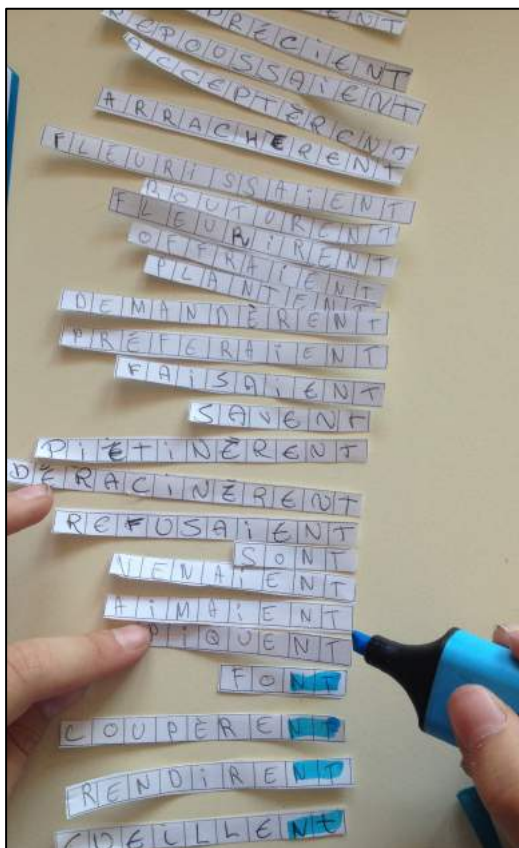 ENT
PRECIENT
REPOUSSAiENT
ACCEPTÈRENT
ARRACHERENT
FLEURiSSAiENT
BOUTURENT
FLEURiRENT
OFFRAiENT
PLANTENT
DEMANDÈRENT
PREFERAiENT
FAiSAiENT
SAVENT
PiETiNÈRENT
DÉRACiNÈRENT
REFUSAiENT
SONT
VENAiENT
AiMAiENT
PiQUENT
FONT
COUPÈRENT
RENDiRENT
CUEiLLENt